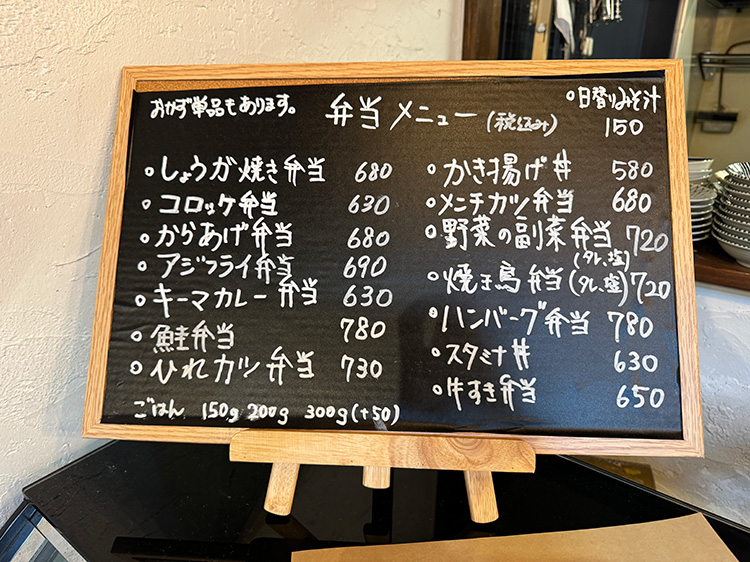 おかず単品もあります。
弁当メニュー(税込み)
○日替りみそ汁
150
○しょうが焼き弁当 680
○コロッケ弁当 630
○からあげ弁当 680
○アジフライ弁当 690
○キーマカレー弁当 630
○鮭弁当 780
○ひれカツ弁当 730
ごはん 150g 200g 300g(+50)
○かき揚げ丼 580
○メンチカツ弁当 680
○野菜の副菜弁当 720
(タレ、塩)
○焼き鳥弁当(タレ、塩) 720
○ハンバーグ弁当 780
○スタミナ丼 630
○牛すき弁当 650